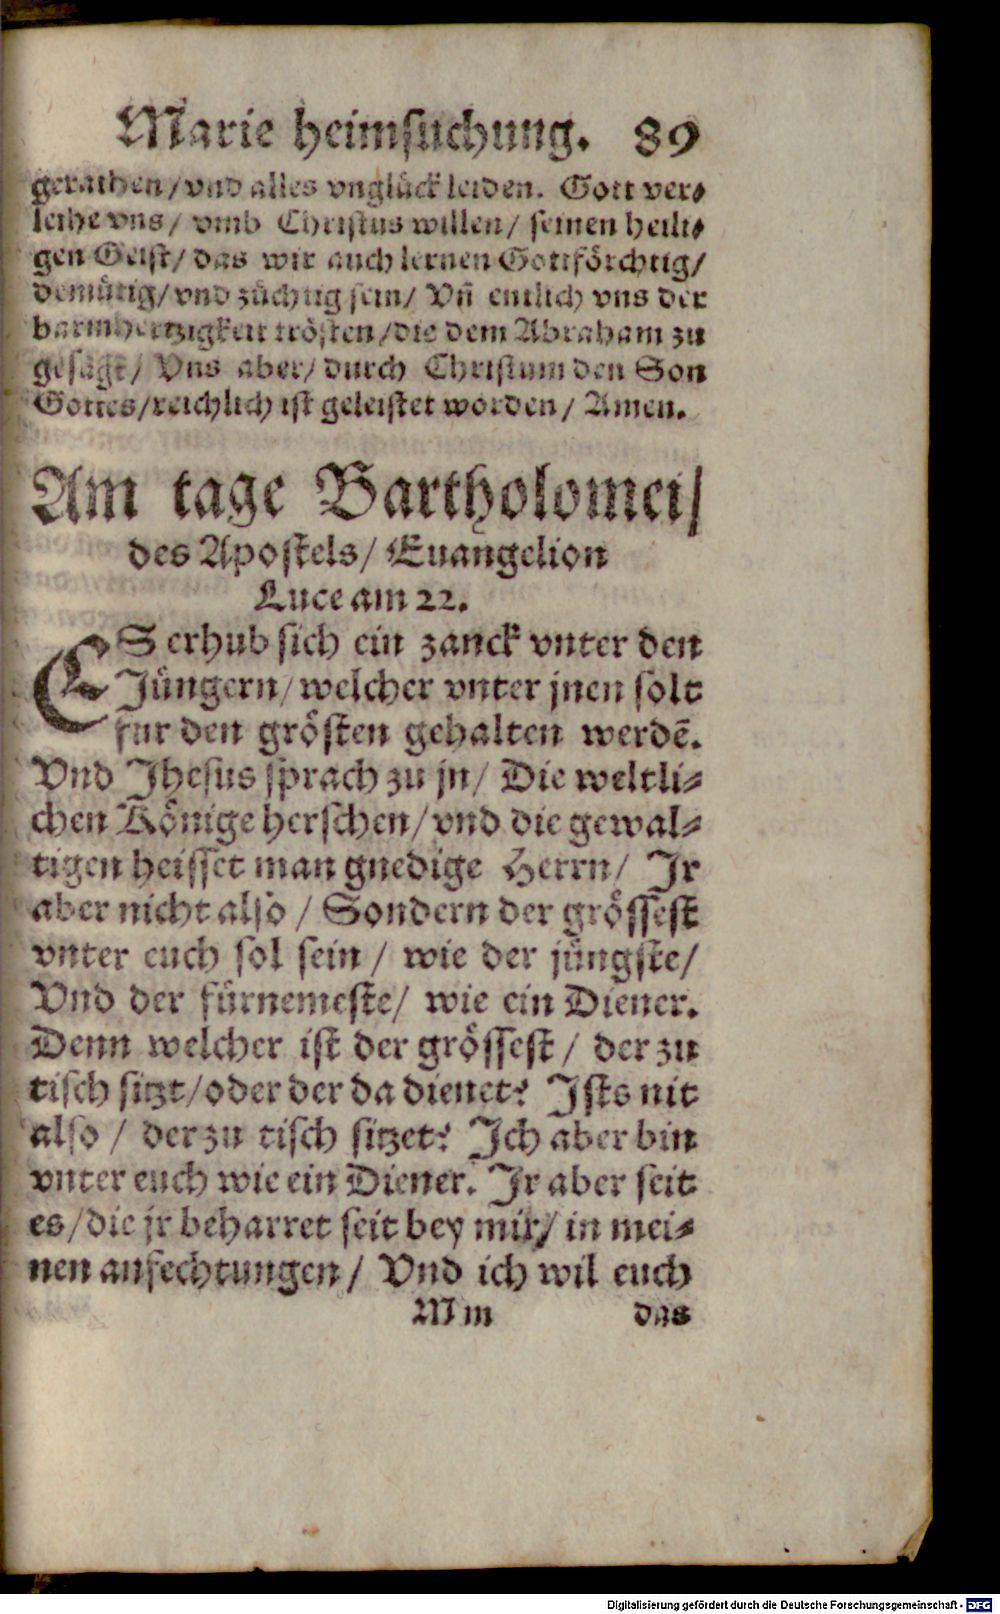 Marie heimsuchung. 89
gerathen/vnd alles vnglück leiden. Gott ver-
leihe vns/ vmb Christus willen/ seinen heili-
gen Geist/ das wir auch lernen Gottförchtig/
demütig/vnd züchtig sein/ Vñ entlich vns der
barmhertzigkeit trösten/die dem Abraham zu
gesagt/ Vns aber/ durch Christum den Son
Gottes/reichlich ist geleistet worden/ Amen.
Am tage Bartholomei/
des Apostels/ Euangelion
Luce am 22.
ES erhub sich ein zanck vnter den
Jüngern/welcher vnter jnen solt
fur den grösten gehalten werdẽ.
Vnd Jhesus sprach zu jn/ Die weltli-
chen Könige herschen/vnd die gewal-
tigen heisset man gnedige Herrn/ Jr
aber nicht also / Sondern der grössest
vnter euch sol sein / wie der jüngste/
Vnd der fürnemeste/ wie ein Diener.
Denn welcher ist der grössest / der zu
tisch sitzt/oder der da dienet? Jsts nit
also / der zu tisch sitzet? Jch aber bin
vnter euch wie ein Diener. Jr aber seit
es/die jr beharret seit bey mir/ in mei-
nen anfechtungen/ Vnd ich wil euch
M m das
Digitalisierung gefördert durch die Deutsche Forschungsgemeinschaft - DFG